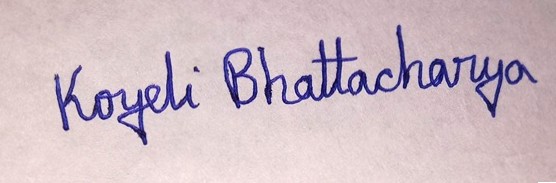 Koyeli Bhattacharya